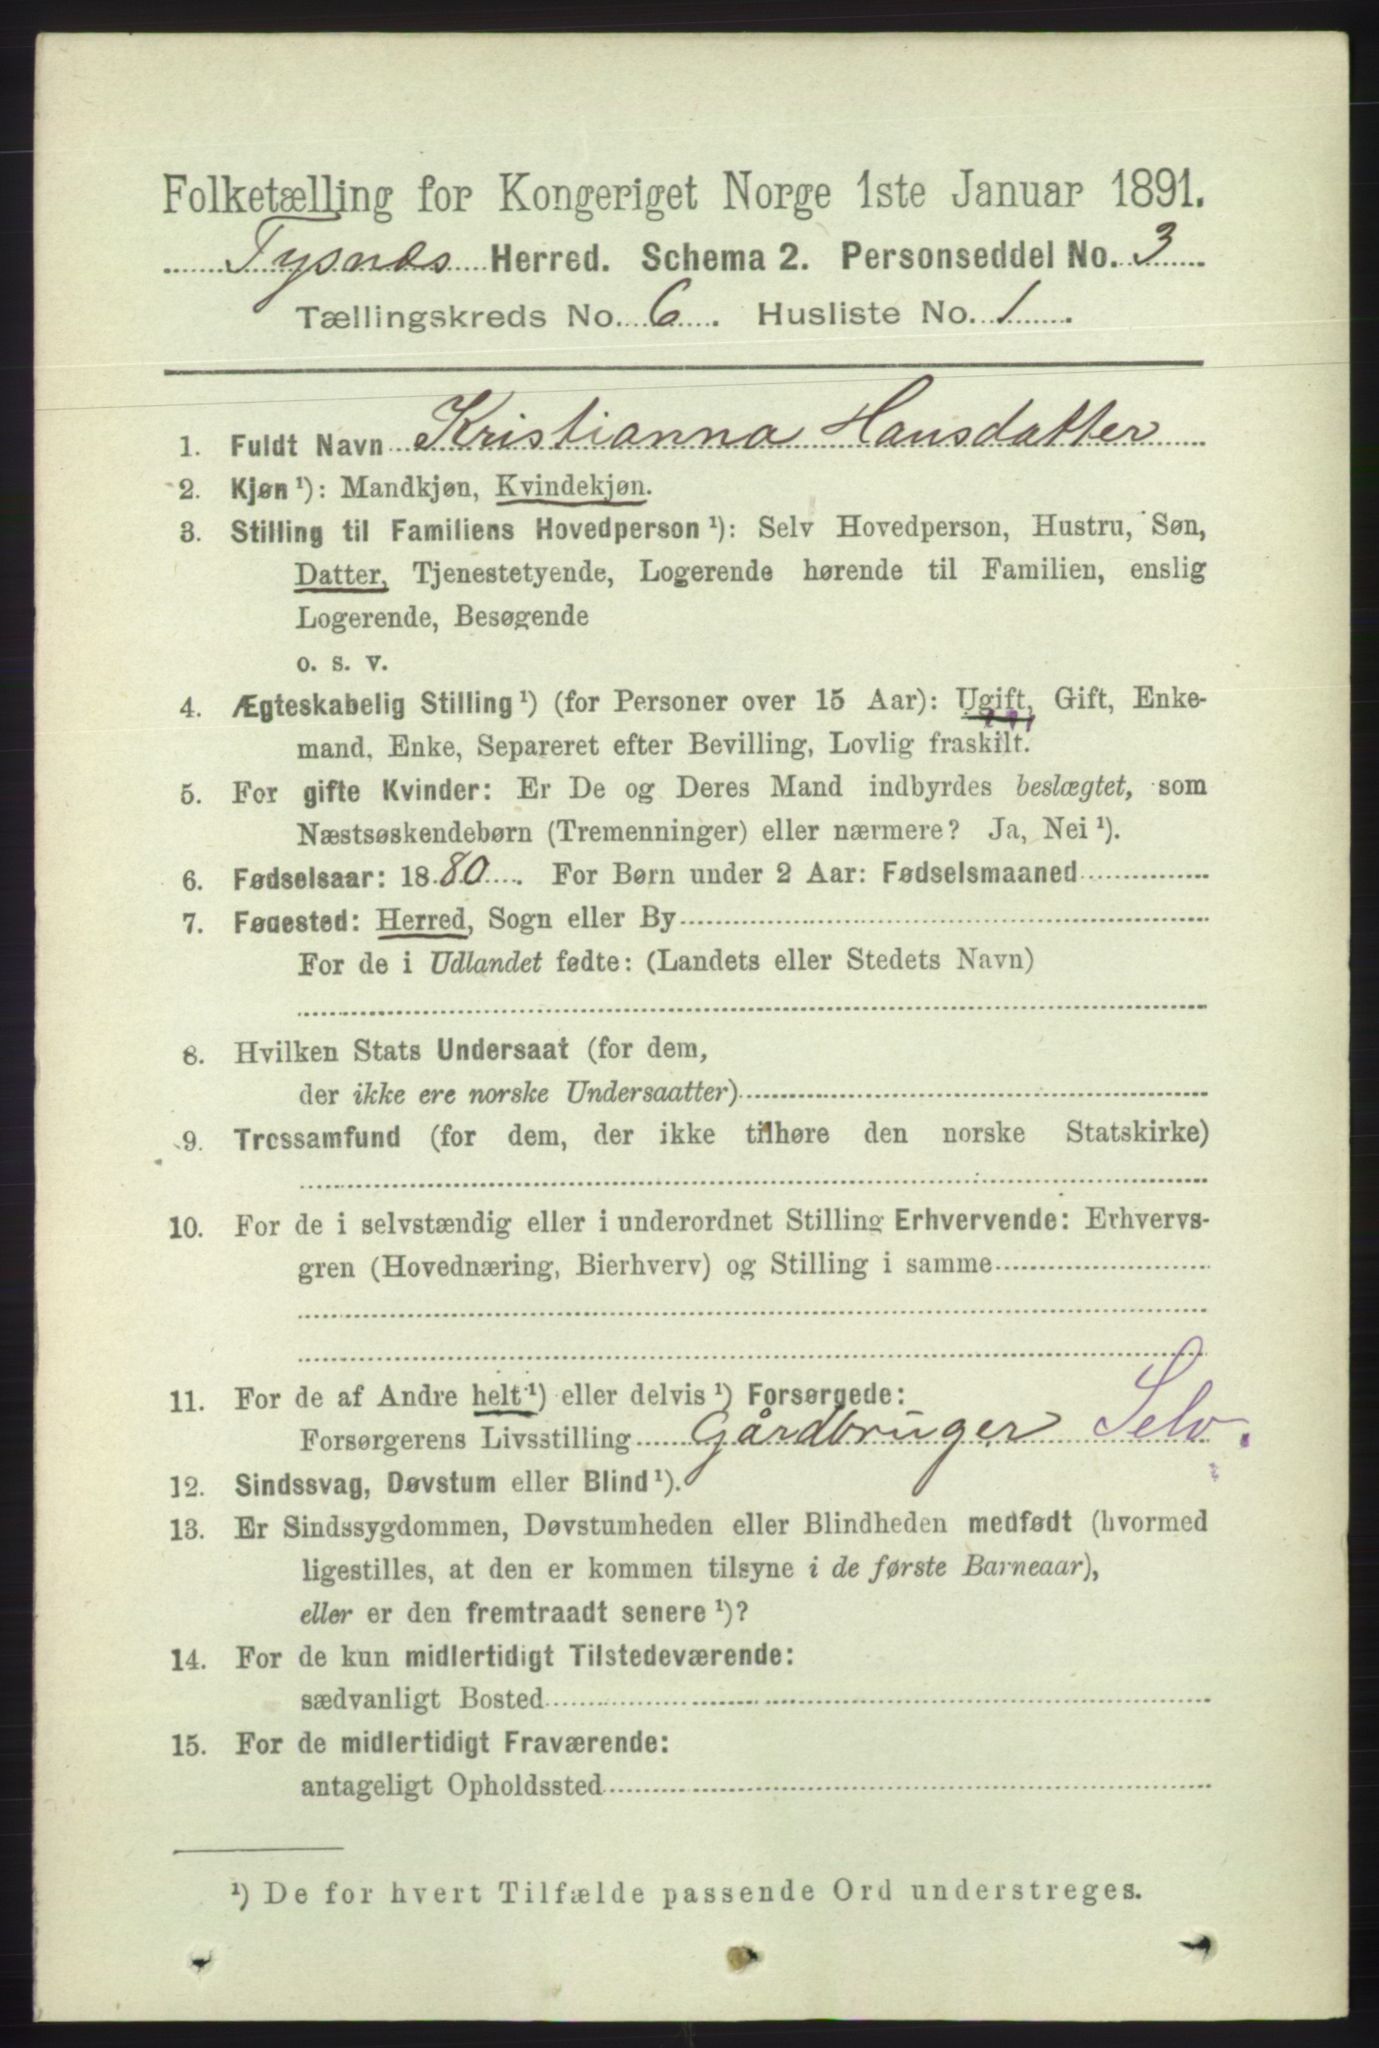 Folketælling for Kongeriget Norge 1ste Januar 1891.
Tysnæs Herred. Schema 2. Personseddel No. 3
Tællingskreds No. 6. Husliste No. 1.
1. Fuldt Navn Kristianna Hansdatter
2. Kjøn ¹): Mandkjøn, Kvindekjøn.
3. Stilling til Familiens Hovedperson ¹): Selv Hovedperson, Hustru, Søn,
Datter, Tjenestetyende, Logerende hørende til Familien, enslig
Logerende, Besøgende
o. s. v.
4. Ægteskabelig Stilling ¹) (for Personer over 15 Aar): Ugift, Gift, Enke-
mand, Enke, Separeret efter Bevilling, Lovlig fraskilt.
5. For gifte Kvinder: Er De og Deres Mand indbyrdes beslægtet, som
Næstsøskendebørn (Tremenninger) eller nærmere? Ja, Nei ¹).
6. Fødselsaar: 1880. For Børn under 2 Aar: Fødselsmaaned
7. Fødested: Herred, Sogn eller By
For de i Udlandet fødte: (Landets eller Stedets Navn)
8. Hvilken Stats Undersaat (for dem,
der ikke ere norske Undersaatter)
9. Trossamfund (for dem, der ikke tilhøre den norske Statskirke)
10. For de i selvstændig eller i underordnet Stilling Erhvervende: Erhvervs-
gren (Hovednæring, Bierhverv) og Stilling i samme
11. For de af Andre helt ¹) eller delvis ¹) Forsørgede:
Forsørgerens Livsstilling Gårdbruger Selv.
12. Sindssvag, Døvstum eller Blind ¹).
13. Er Sindssygdommen, Døvstumheden eller Blindheden medfødt (hvormed
ligestilles, at den er kommen tilsyne i de første Barneaar),
eller er den fremtraadt senere ¹)?
14. For de kun midlertidigt Tilstedeværende:
sædvanligt Bosted
15. For de midlertidigt Fraværende:
antageligt Opholdssted
¹) De for hvert Tilfælde passende Ord understreges.